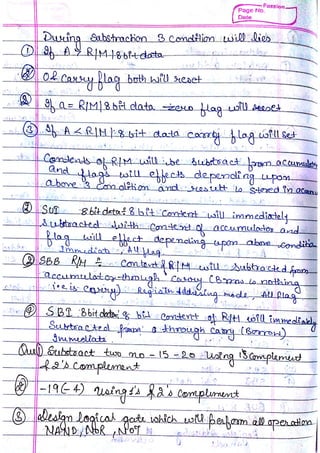 Page No.
Date
During Substraction 3 condition will lies
① If A > R/M/8 bit data
② or carry flag both will reset
② If a = R/M/8 bit data zero flag will
③ If A < R/M/8 bit data carry flag will set
Contents of R/M will be subtract from accumulator
and flags will effects depending upon
above 3 condition and result is stored in
① SUI 8 bit data 8 bit content will immediately
subtracted with content of accumulator and
flag will effect depending upon above condition
Immediate All flag
② SBB R/M = Content of R/M will subtracted from
accumulator through carry (Borrow is nothing
i.e is carry) mode, All flag
③ SBI 8 bit data 8 bit content of R/M will immediately
Subtracted from a through carry (Borrow)
Immediate
Substract two no - 15 - 20 using 1's complement
& 2's complement
② -19 (-4) using 1's & 2's compliment
③ design logical gate which will perform all operation
NAND, NOR, NOT